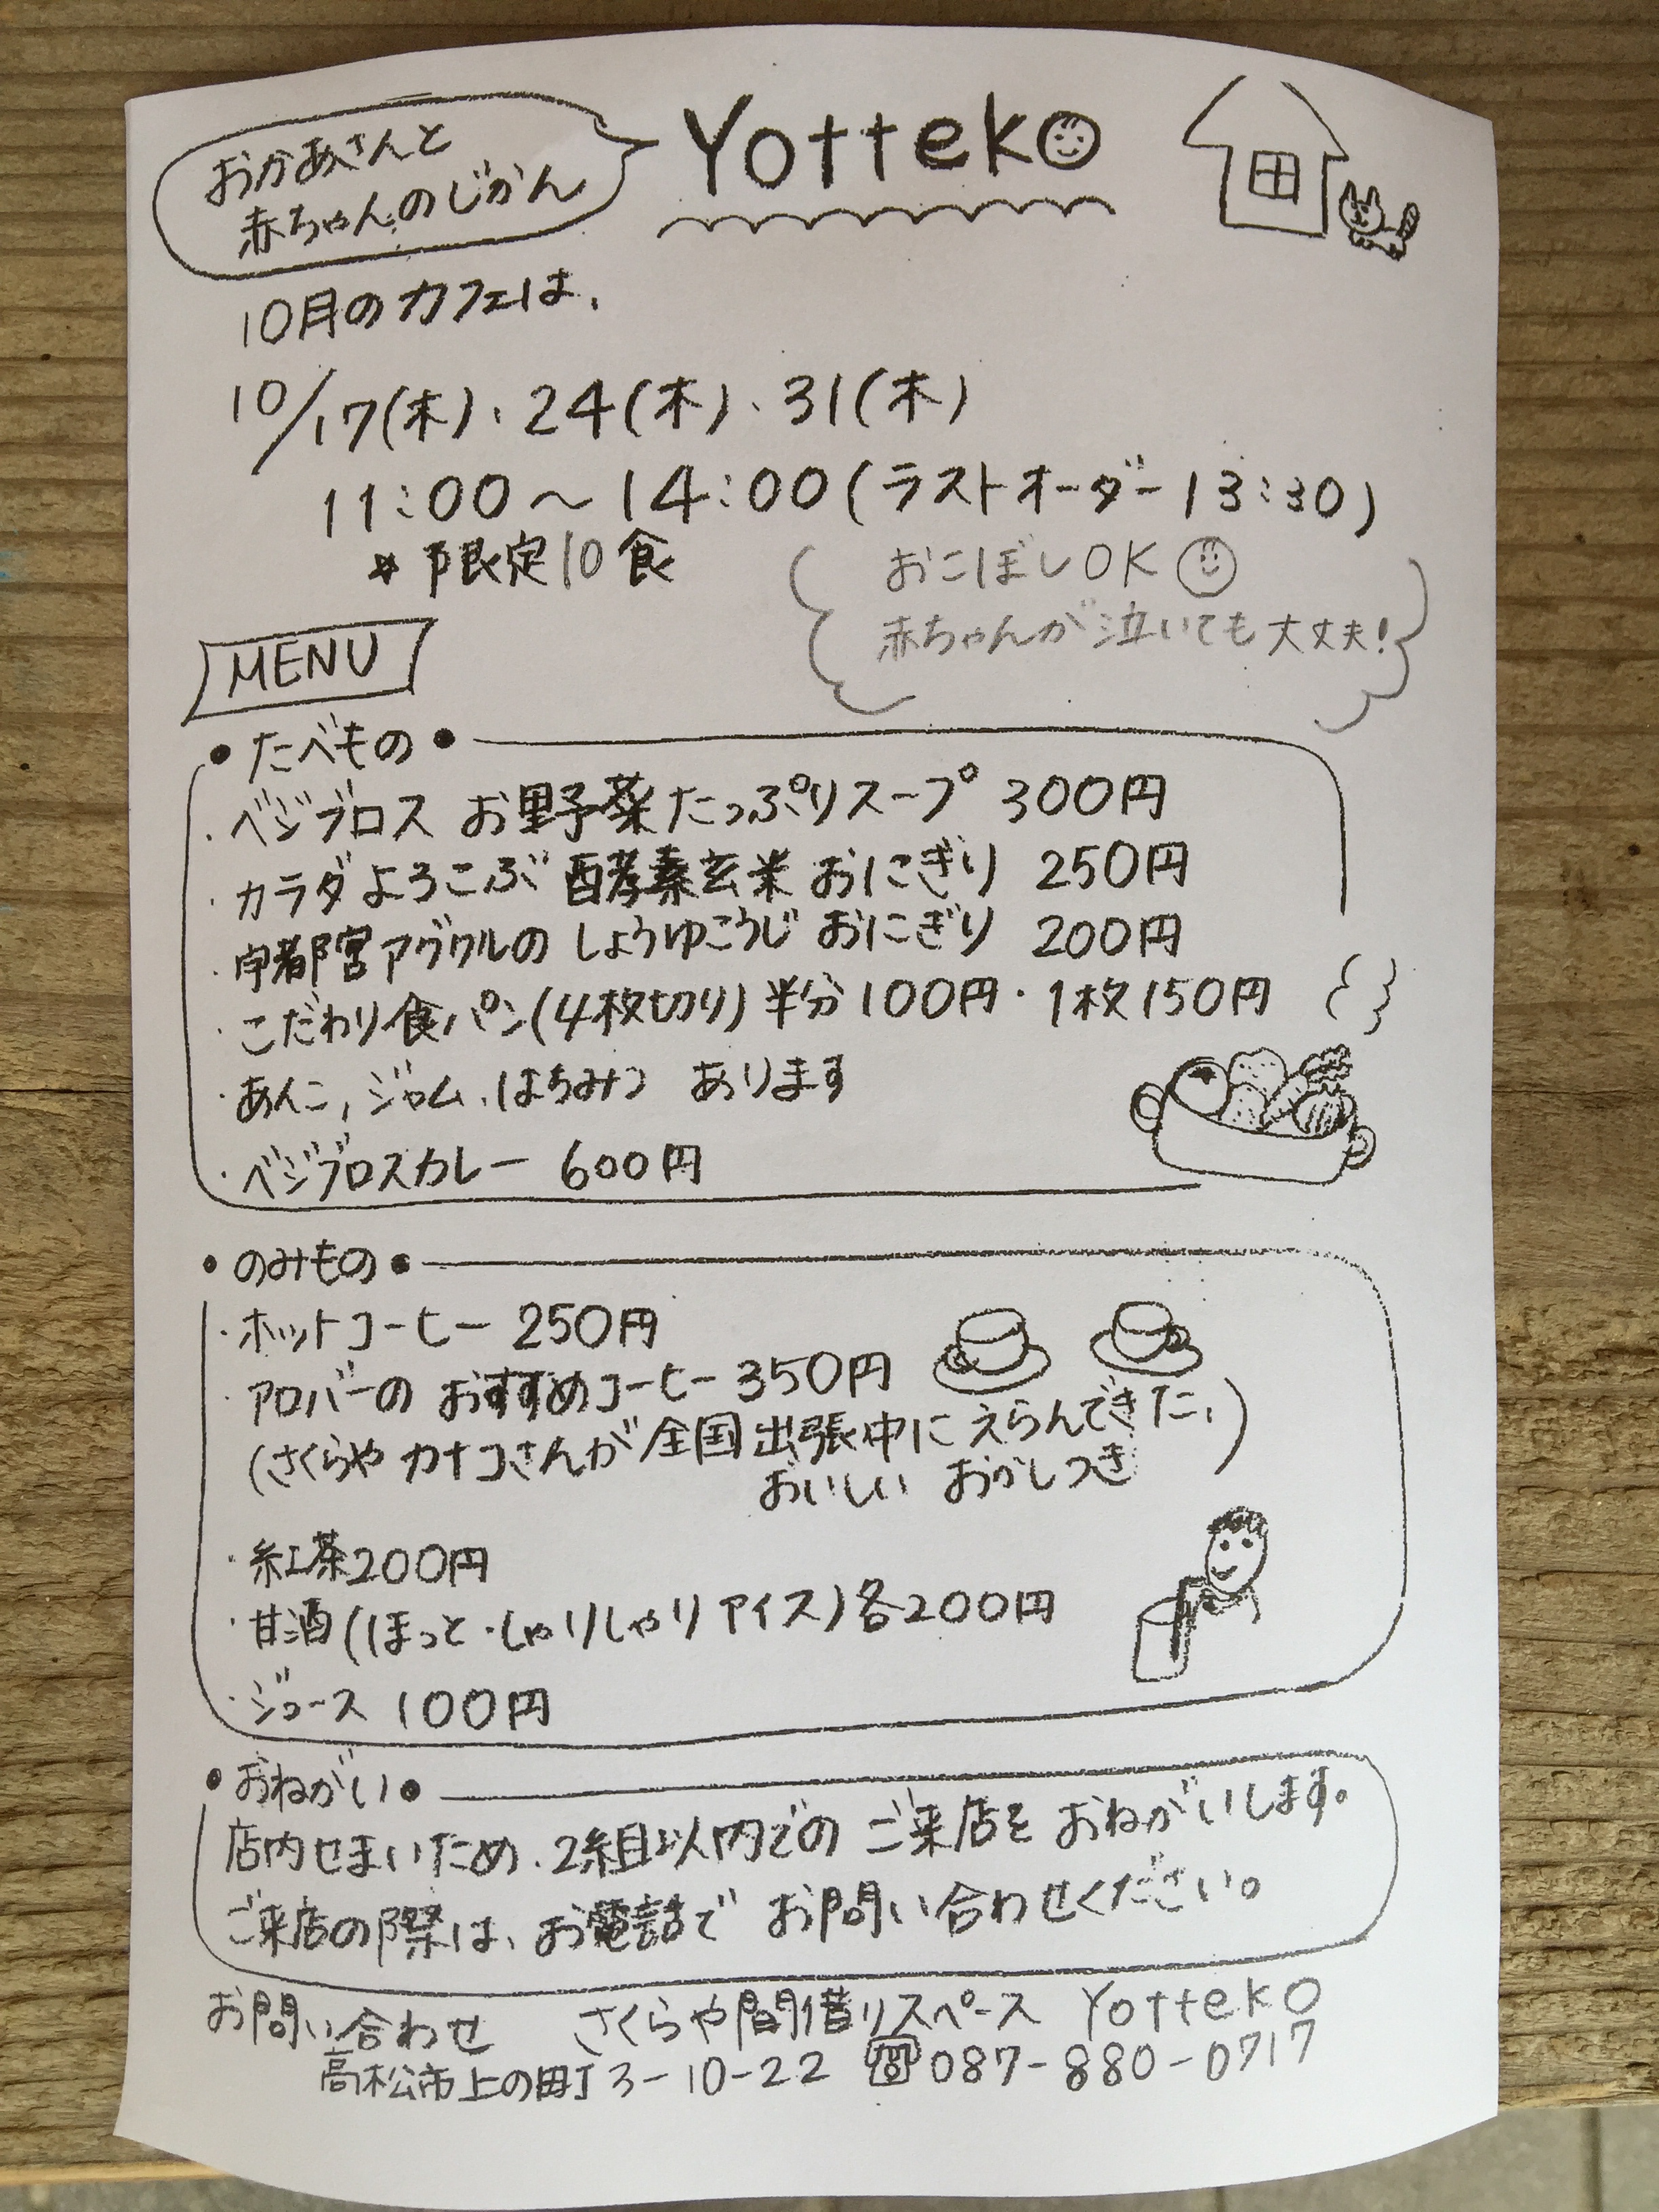 おかあさんと
赤ちゃんのじかん
Yotteko
10月のカフェは、
10/17(木)、24(木)、31(木)
11:00〜14:00(ラストオーダー13:30)
☆限定10食
おこぼしOK
赤ちゃんが泣いても大丈夫!
MENU
●たべもの●
・ベジブロス お野菜たっぷりスープ 300円
・カラダよろこぶ 酵素玄米 おにぎり 250円
・宇都宮アグクルの しょうゆこうじ おにぎり 200円
・こだわり食パン(4枚切り) 半分100円・1枚150円
・あんこ、ジャム、はちみつ あります
・ベジブロスカレー 600円
●のみもの●
・ホットコーヒー 250円
・アロバーの おすすめコーヒー 350円
(さくらや カナコさんが全国出張中に えらんできた、
おいしい おかしつき)
・紅茶200円
・甘酒(ほっと・しゃりしゃりアイス)各200円
・ジュース 100円
●おねがい●
店内せまいため、2組以内での ご来店を おねがいします。
ご来店の際は、お電話で お問い合わせください。
お問い合わせ さくらや間借りスペース Yotteko
高松市上の町3-10-22 ☎087-880-0717